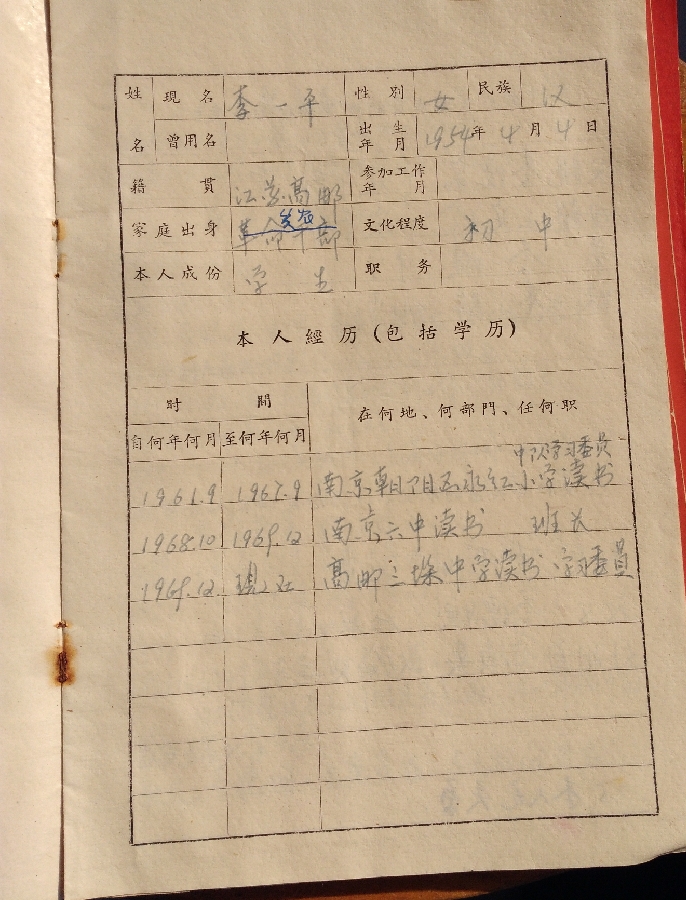 姓 現名 李一平 性別 女 民族 汉
名 曾用名 出生年月 1954年4月4日
籍貫 江苏高邮 参加工作年月
家庭出身 革命干部 文化程度 初中
本人成份 学生 职务
本人經历(包括学历)
时間 在何地、何部門、任何职
自何年何月 至何年何月
中队学习委员
1961.9 1967.9 南京朝阳区永红小学读书
1968.10 1969.12 南京六中读书 班长
1969.12 現在 高邮三垛中学读书 学习委員